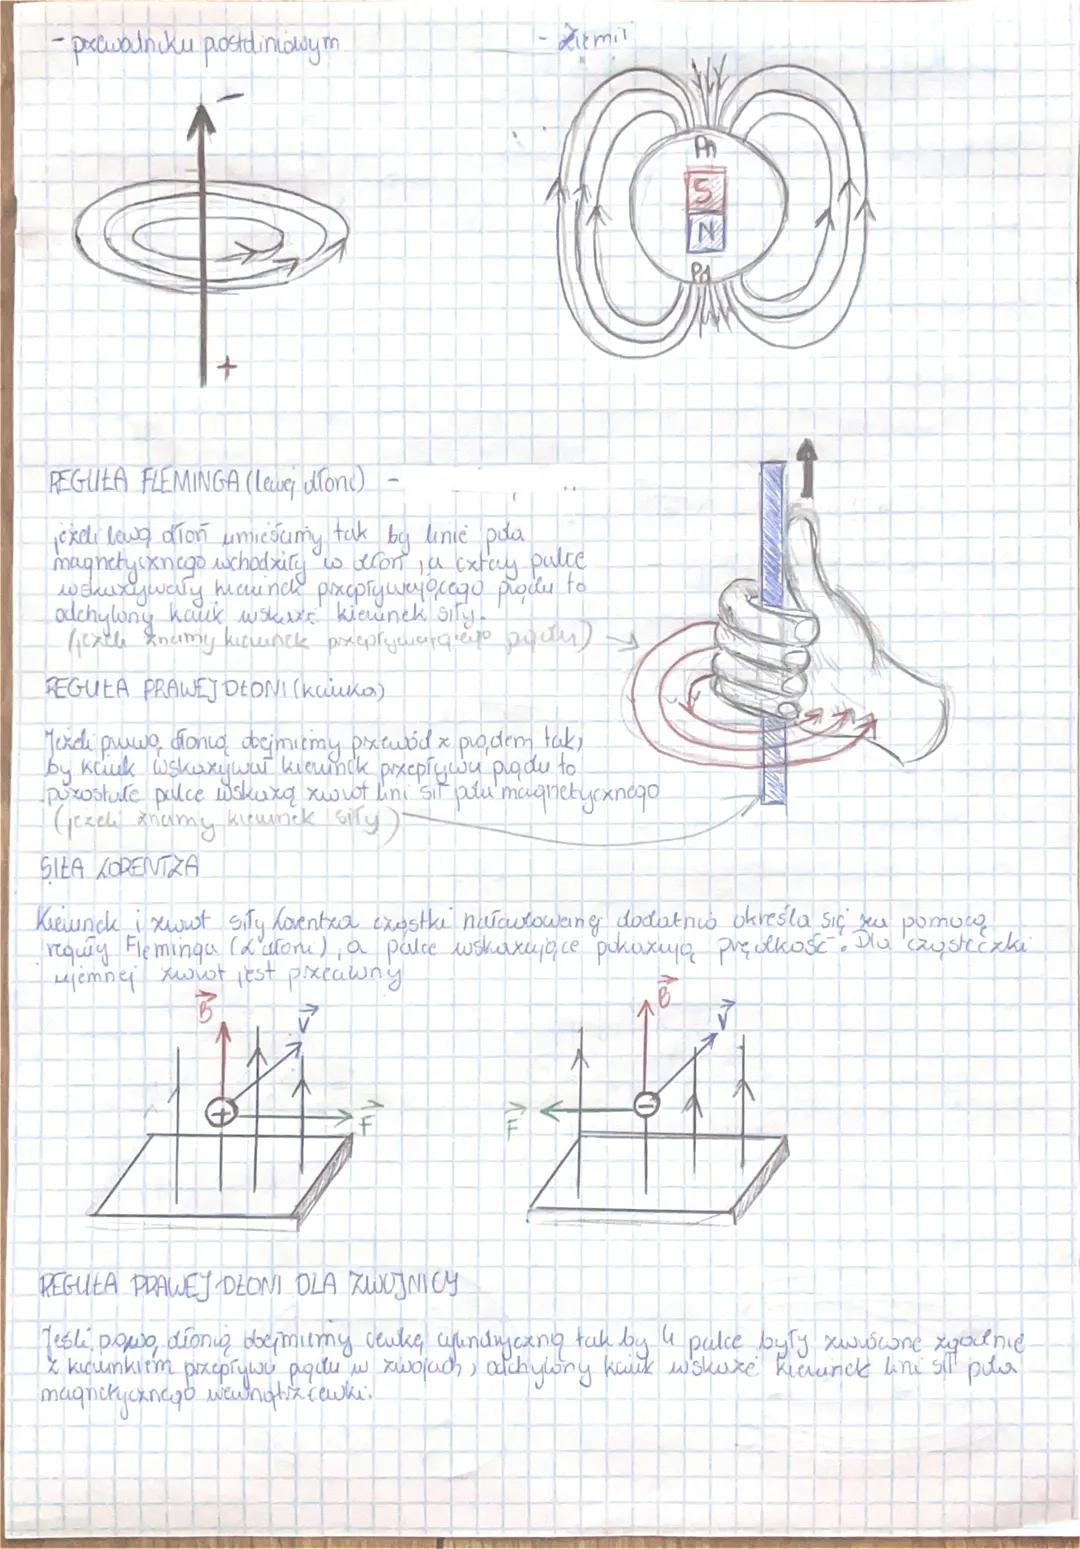 - przewodniku prostoliniowym
- Ziemii
-
+
Pn
S
N
Pd
REGUŁA FLEMINGA (lewej dłoni) -
jeżeli lewą dłoń umieścimy tak by linie pola
magnetycznego wchodziły w dłoń, a cztery palce
wskazywały kierunek przepływającego prądu to
odchylony kciuk wskaże kierunek siły.
(jeżeli znamy kierunek przepływającego prądu)
REGUŁA PRAWEJ DŁONI (kciuka)
Jeżeli prawą dłonią obejmiemy przewód z prądem tak,
by kciuk wskazywał kierunek przepływu prądu to
pozostałe palce wskażą zwrot lini sił pola magnetycznego
(jeżeli znamy kierunek siły)
SIŁA LORENTZA
Kierunek i zwrot siły Lorentza cząstki naładowanej dodatnio określa się za pomocą
reguły Fleminga (L dłoni), a palce wskazujące pokazują prędkość. Dla cząsteczki
ujemnej zwrot jest przeciwny
B
V
F
B
V
F
REGUŁA PRAWEJ DŁONI DLA ZWOJNICY
Jeśli prawą dłonią obejmiemy cewkę cylindryczną tak by 4 palce były zwrócone zgodnie
z kierunkiem przepływu prądu w zwojach, odchylony kciuk wskaże kierunek lini sił pola
magnetycznego wewnątrz cewki.